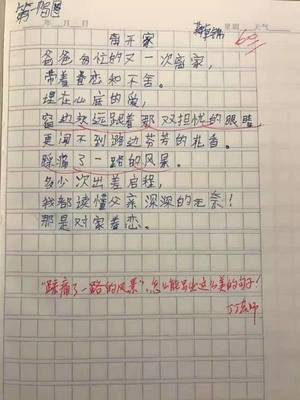 第一档
年 月 日 星期 天气
离开家
爸爸每位的又一次离家,
带着眷恋和不舍。
埋在心底的爱,
窗边永远跟着那双担忧的眼睛
更闻不到路边芬芳的花香。
踩痛了一路的风景。
多少次出差启程,
我都读懂父亲深深的无奈!
那是对家眷恋。
"踩痛了一路的风景",怎么能写出这么美的句子!
丁老师